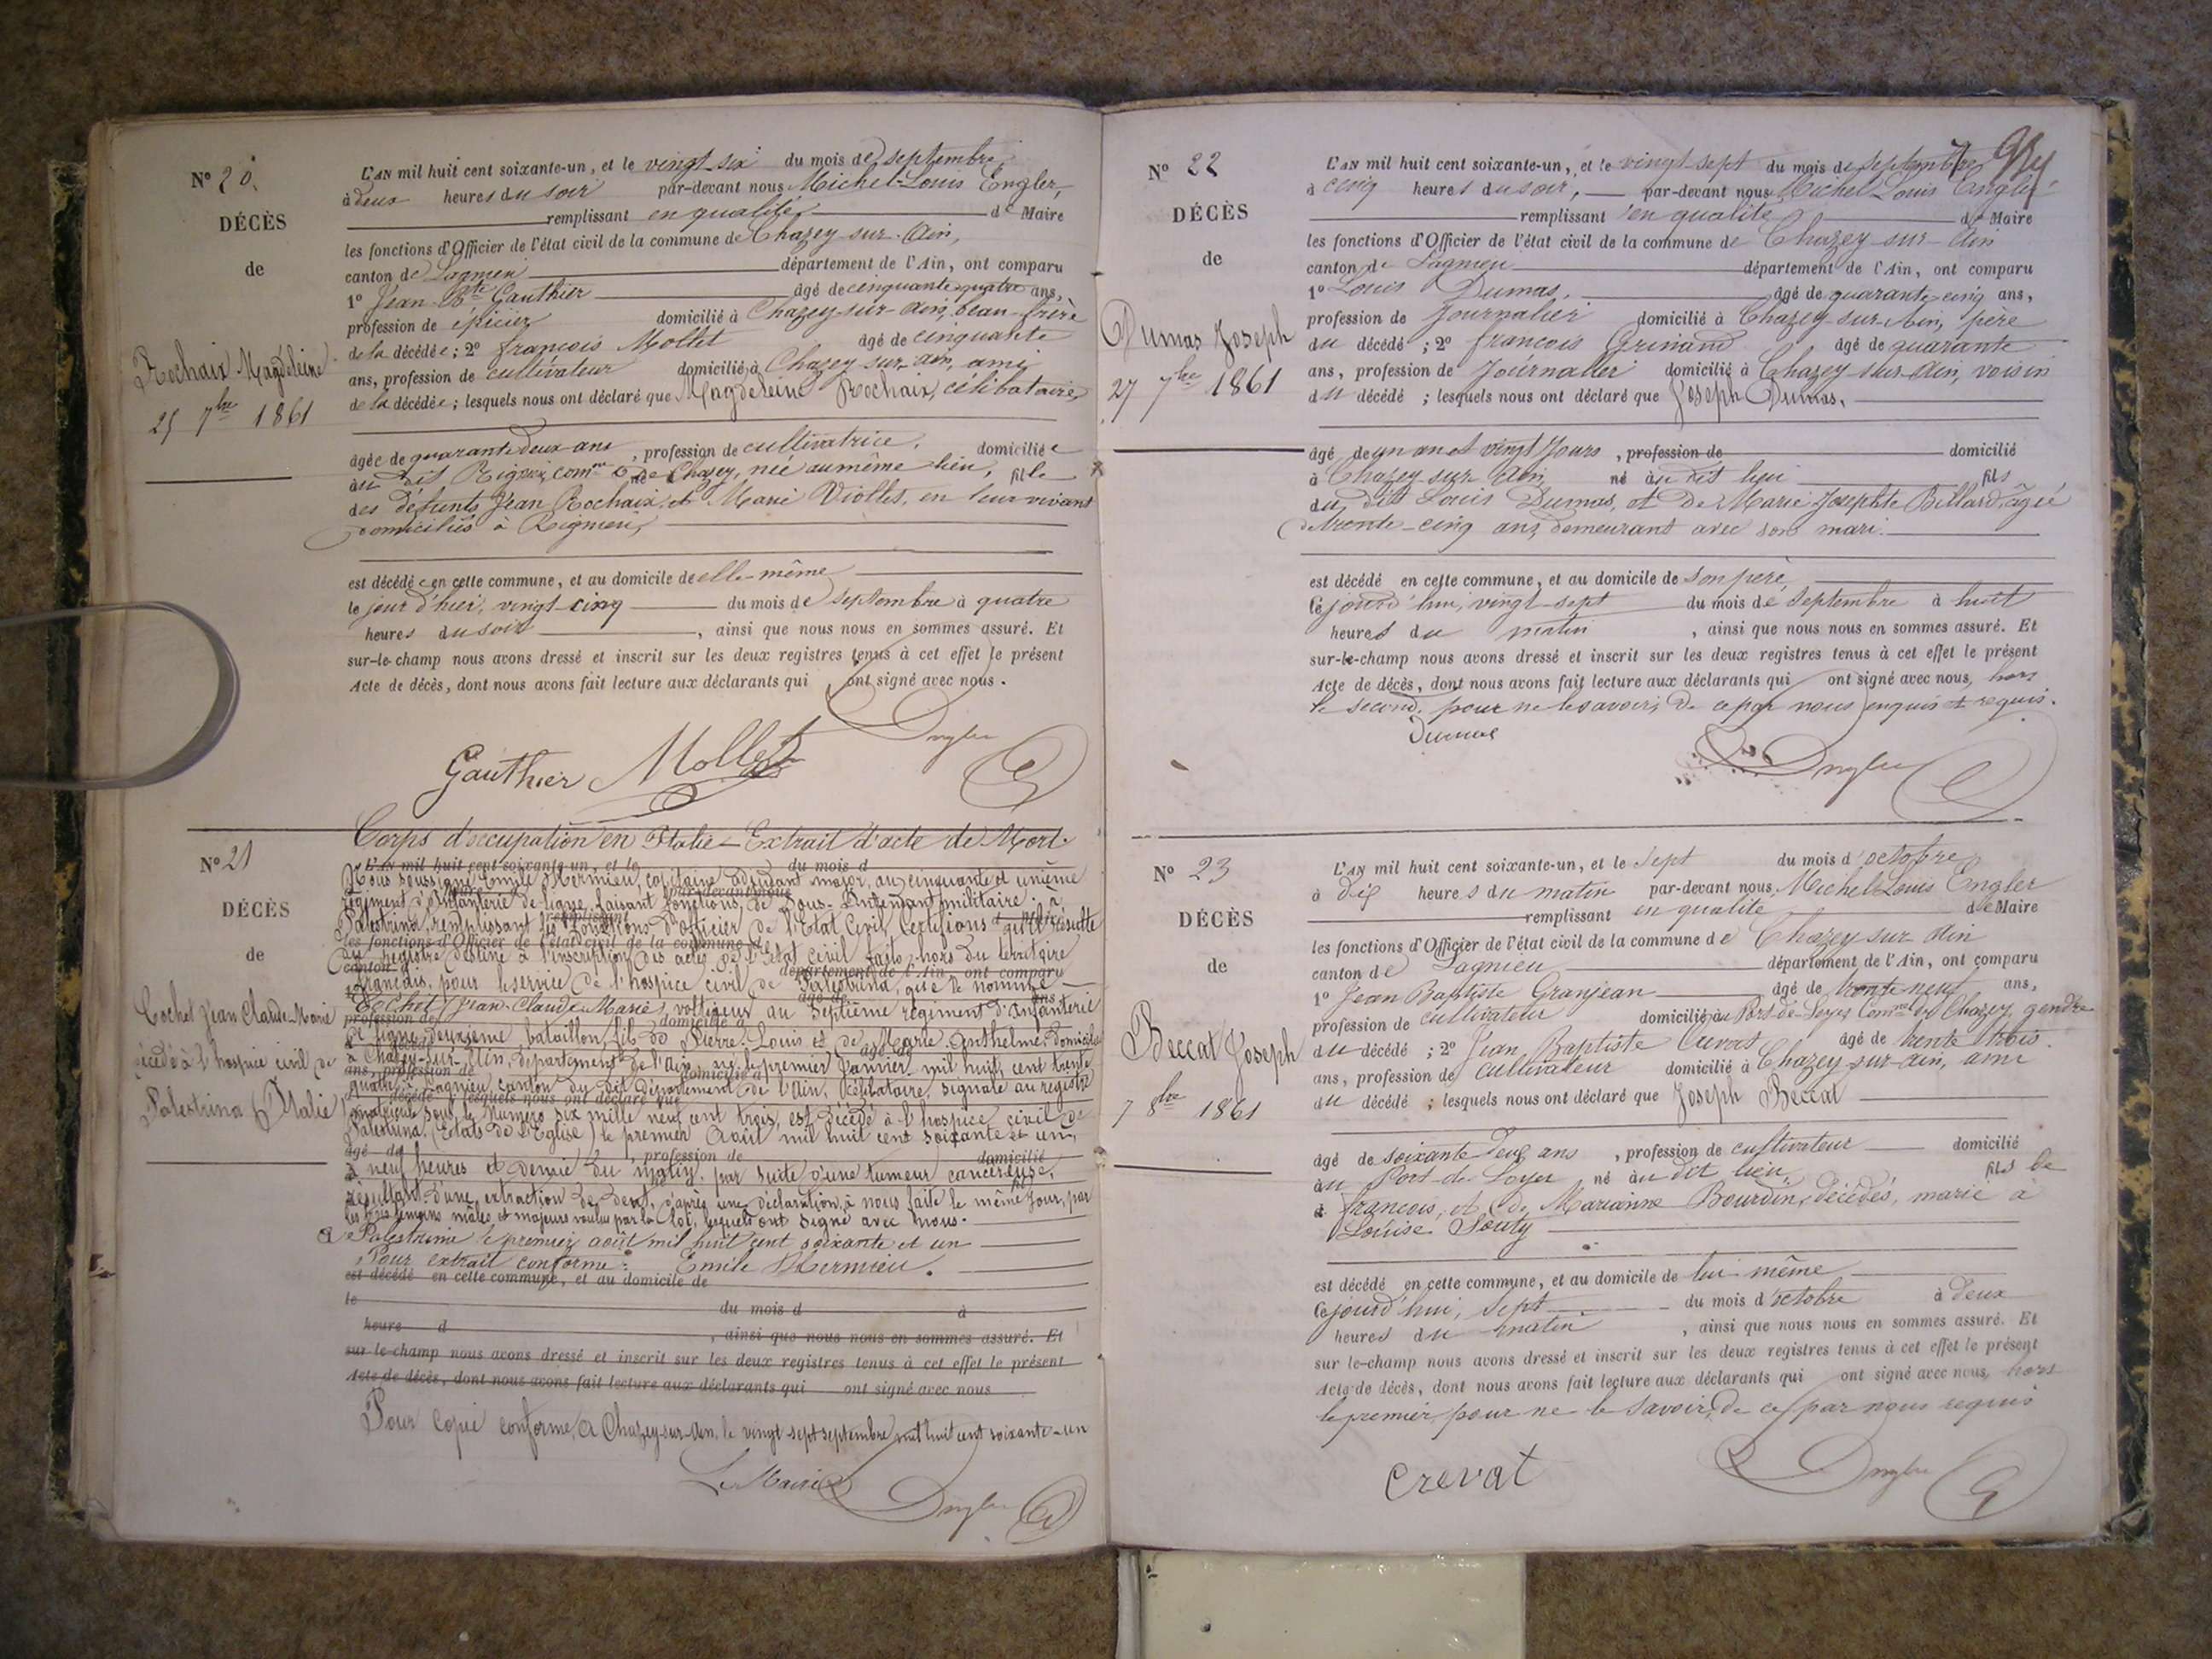 N° 20.
DÉCÈS
de
Rochaix Magdeleine
25 7bre 1861
L'AN mil huit cent soixante-un, et le vingt six du mois de septembre
à deux heures du soir par-devant nous Michel-Louis Engler,
remplissant en qualité de Maire
les fonctions d'Officier de l'état civil de la commune de Chazey-sur-Ain,
canton de Lagnieu département de l'Ain, ont comparu
1° Jean-Bte Gauthier âgé de cinquante quatre ans,
profession de épicier domicilié à Chazey-sur-Ain, beau-frère
de la décédée; 2° françois Mollet âgé de cinquante
ans, profession de cultivateur domicilié à Chazey-sur-Ain, ami
de la décédée; lesquels nous ont déclaré que Magdeleine Rochaix, célibataire,
âgée de quarante deux ans, profession de cultivatrice, domiciliée
au dit Rigneux, comne de Chazey, née au même lieu, fille
des défunts Jean Rochaix et Marie Viollet, en leur vivant
domiciliés à Rigneux,
est décédée en cette commune, et au domicile de elle-même
le jour d'hier, vingt cinq du mois de septembre à quatre
heures du soir, ainsi que nous nous en sommes assuré. Et
sur-le-champ nous avons dressé et inscrit sur les deux registres tenus à cet effet le présent
Acte de décès, dont nous avons fait lecture aux déclarants qui ont signé avec nous.
Gauthier Mollet Engler
N° 21
DÉCÈS
de
Cochet Jean Claude-Marie
décédé à l'hospice civil de
Palestrina (Italie)
Corps d'occupation en Italie - Extrait d'acte de Mort.
L'AN mil huit cent soixante-un, et le du mois d
Nous soussigné Emile Mermieu, capitaine adjudant major, au cinquante et unième
régiment d'Infanterie de ligne, faisant fonctions de Sous-Intendant militaire à
Palestrina, remplissant les fonctions d'officier de l'Etat Civil, Certifions qu'il résulte
les fonctions d'Officier de l'état civil de la commune d
du registre destiné à l'inscription des actes de l'Etat civil faits hors du territoire
canton d département de l'Ain, ont comparu
français, pour le service de l'hospice civil de Palestrina, que le nommé
Cochet Jean-Claude-Marie, voltigeur au septième régiment d'Infanterie
profession de domicilié à
de ligne, deuxième bataillon, fils de Pierre-Louis et de Marie Anthelme, domiciliés
à Chazey-sur-Ain, département de l'Ain, né le premier Janvier mil huit cent trente
ans, profession de domicilié à
quatre à Lagnieu, canton du dit département de l'Ain, célibataire, signalé au registre
décédé; lesquels nous ont déclaré que
matricule sous le numéro six mille neuf cent trois, est décédé à l'hospice civil de
Palestrina, (Etats de l'Eglise) le premier Août mil huit cent soixante et un,
âgé de, profession de domicilié
à neuf heures et demie du matin, par suite d'une tumeur cancéreuse,
résultant d'une extraction de dent, d'après une déclaration à nous faite le même jour, par
les trois témoins mâles et majeurs voulus par la Loi, lesquels ont signé avec nous.
à Palestrina le premier août mil huit cent soixante et un
Pour extrait conforme: Emile Mermieu.
est décédé en cette commune, et au domicile de
le du mois d à
heure d, ainsi que nous nous en sommes assuré. Et
sur-le-champ nous avons dressé et inscrit sur les deux registres tenus à cet effet le présent
Acte de décès, dont nous avons fait lecture aux déclarants qui ont signé avec nous
Pour Copie conforme, à Chazey-sur-Ain, le vingt-sept septembre mil huit cent soixante-un
Le Maire Engler
N° 22
DÉCÈS
de
Dumas Joseph
27 7bre 1861
L'AN mil huit cent soixante-un, et le vingt sept du mois de septembre
à cinq heures du soir, par-devant nous Michel Louis Engler
remplissant en qualité de Maire
les fonctions d'Officier de l'état civil de la commune de Chazey-sur-Ain
canton de Lagnieu département de l'Ain, ont comparu
1° Louis Dumas, âgé de quarante cinq ans,
profession de Journalier domicilié à Chazey-sur-Ain, père
du décédé; 2° françois Grinand âgé de quarante
ans, profession de Journalier domicilié à Chazey-sur-Ain, voisin
du décédé; lesquels nous ont déclaré que Joseph Dumas,
âgé de un an et vingt jours, profession de domicilié
à Chazey-sur-Ain, né au dit lieu fils
du dit Louis Dumas, et de Marie Josephte Billard, âgée
de trente-cinq ans, demeurant avec son mari.
est décédé en cette commune, et au domicile de son père
Cejourd'hui, vingt-sept du mois de septembre à huit
heures du matin, ainsi que nous nous en sommes assuré. Et
sur-le-champ nous avons dressé et inscrit sur les deux registres tenus à cet effet le présent
Acte de décès, dont nous avons fait lecture aux déclarants qui ont signé avec nous, hors
le second, pour ne le savoir, de ce par nous enquis et requis.
Dumas Engler
N° 23
DÉCÈS
de
Beccat Joseph
7 8bre 1861
L'AN mil huit cent soixante-un, et le sept du mois d'octobre
à dix heures du matin par-devant nous, Michel Louis Engler
remplissant en qualité de Maire
les fonctions d'Officier de l'état civil de la commune de Chazey-sur-Ain
canton de Lagnieu département de l'Ain, ont comparu
1° Jean Baptiste Granjean âgé de trente neuf ans,
profession de cultivateur domicilié au Port-de-Loyes Comne de Chazey, gendre
du décédé; 2° Jean Baptiste Crevat âgé de trente trois
ans, profession de cultivateur domicilié à Chazey-sur-Ain, ami
du décédé; lesquels nous ont déclaré que Joseph Beccat
âgé de soixante deux ans, profession de cultivateur domicilié
au Port-de-Loyes né au dit lieu fils de
françois, et de Marianne Bourdin, décédés, marié à
Louise Souty
est décédé en cette commune, et au domicile de lui même
Cejourd'hui, sept du mois d'octobre à deux
heures du matin, ainsi que nous nous en sommes assuré. Et
sur-le-champ nous avons dressé et inscrit sur les deux registres tenus à cet effet le présent
Acte de décès, dont nous avons fait lecture aux déclarants qui ont signé avec nous, hors
le premier, pour ne le savoir, de ce par nous requis
Crevat Engler